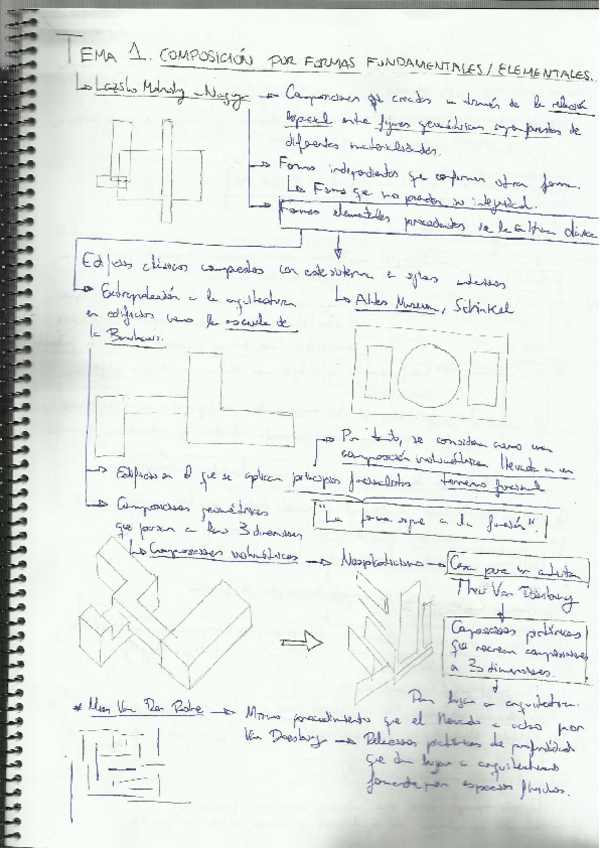 TEMA 1. COMPOSICIÓN POR FORMAS FUNDAMENTALES/ELEMENTALES.
Laszlo Moholy-Nagy → Composiciones creadas a través de la relación
espacial entre figuras geométricas superpuestas de
diferentes materialidades.
→ Formas independientes que conforman otra forma.
La Forma que no pierden su integridad.
→ Formas elementales procedentes de la cultura clásica
Edificios clásicos compuestos con este sistema
→ Altes Museum, Schinkel
→ Extrapolación a la arquitectura
en edificios como la escuela de
la Bauhaus.
→ Por tanto, se considera como una
composición volumétrica llevada a un
terreno funcional
→ Edificio en el que se aplican principios funcionalistas
"La forma sigue a la función".
→ Composiciones geométricas
que pasan a las 3 dimensiones
→ Composiciones volumétricas → Neoplasticismo → Casa para un artista
Theo Van Doesburg
Composiciones pictóricas
que recrean composiciones
a 3 dimensiones.
Dan lugar a arquitectura.
* Mies Van Der Rohe → Mismo procedimiento que el llevado a cabo por
Van Doesburg → Relaciones pictóricas de profundidad
que dan lugar a arquitecturas
por espacios fluidos.